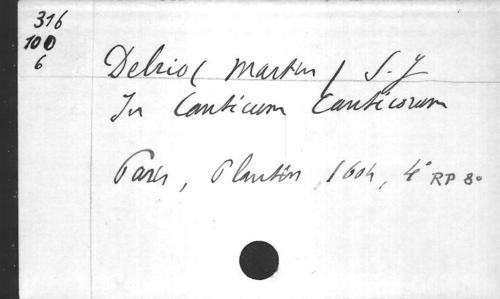 316
100
6
Delrio (Martin) S.J
In Canticum Canticorum
Paris, Plantin, 1604, 4° RP 8°